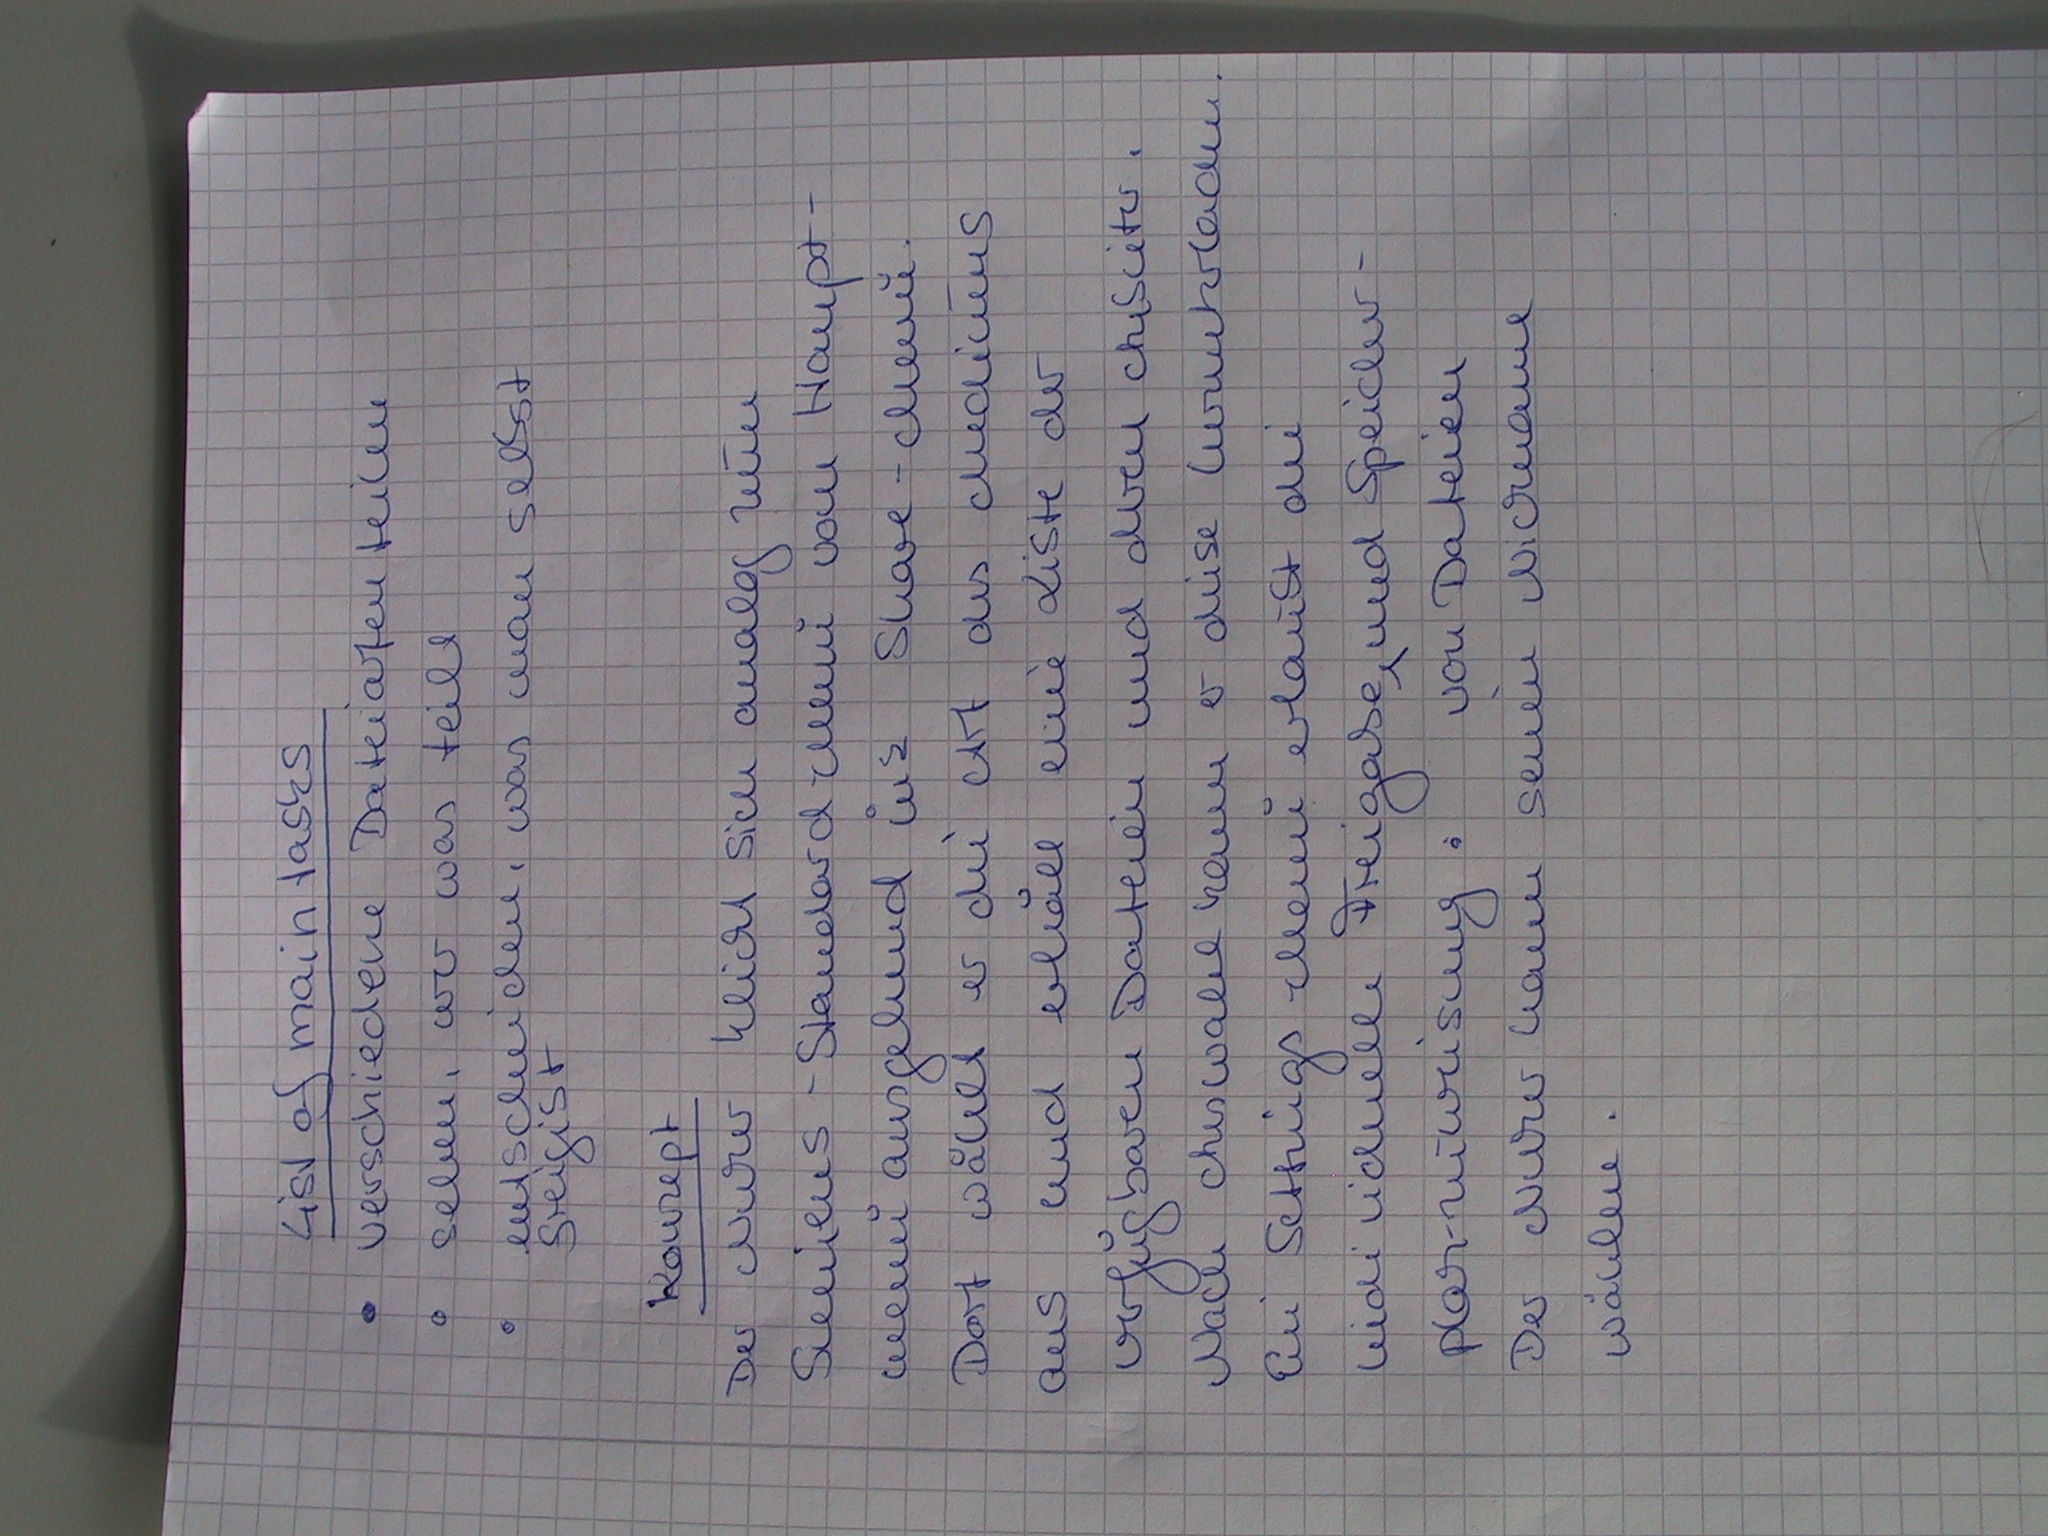 List of main tasks
• verschiedene Dateiarten teilen
• sehen, wer was teilt
• entscheiden, was man selbst
freigibt
Konzept
Der Nutzer klickt sich analog zum
Siemens-Standardmenü vom Haupt-
menü ausgehend ins Share-Menü.
Dort wählt er die Art des Mediums
aus und erhält eine Liste der
verfügbaren Dateien und deren Anbieter.
Nach Auswahl kann er diese herunterladen.
Ein Settings Menü erlaubt die
individuelle Freigabe, und Speicher-
platzzuweisung von Dateien
Der Nutzer kann seinen Nickname
wählen.